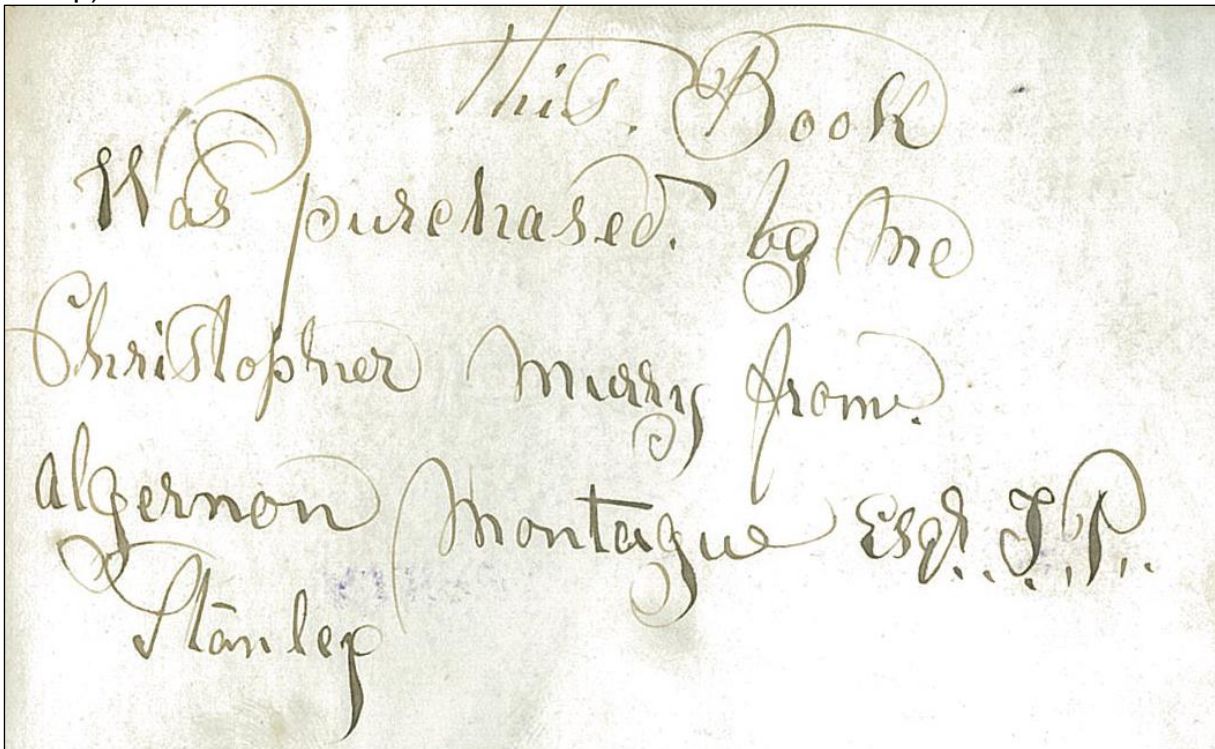 This. Book
Was purchased. by me
Christopher Murry from.
algernon Montague Esqr. J.P.
Stanley